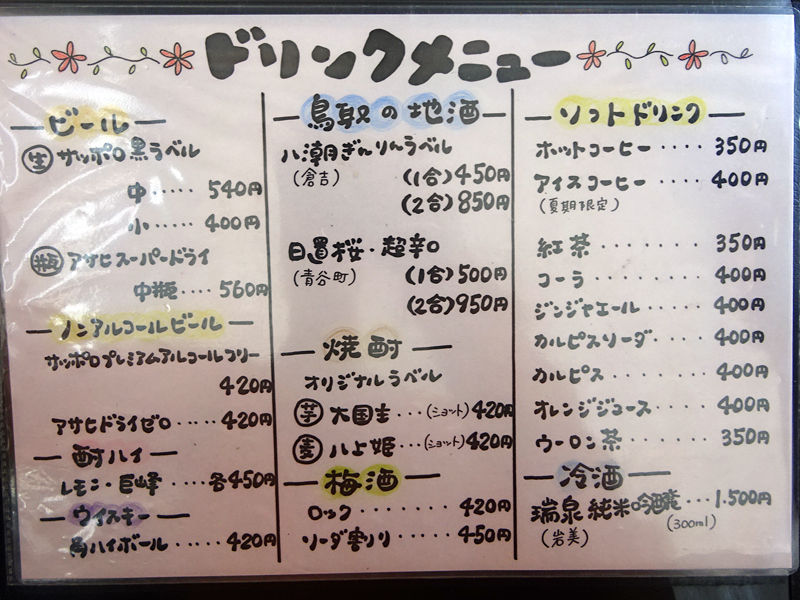 ドリンクメニュー
ビール
生 サッポロ黒ラベル
中‥‥‥ 540円
小‥‥‥ 400円
瓶 アサヒスーパードライ
中瓶‥‥‥ 560円
ノンアルコールビール
サッポロプレミアムアルコールフリー
420円
アサヒドライゼロ‥‥‥420円
酎ハイ
レモン・巨峰‥‥‥各450円
ウイスキー
角ハイボール‥‥‥420円
鳥取の地酒
八潮ぎんりんラベル
(倉吉) (1合)450円
(2合)850円
日置桜・超辛口
(青谷町) (1合)500円
(2合)950円
焼酎
オリジナルラベル
芋 大国主‥‥(ショット)420円
麦 八上姫‥‥(ショット)420円
梅酒
ロック‥‥‥‥420円
ソーダ割り‥‥‥450円
ソフトドリンク
ホットコーヒー‥‥ 350円
アイスコーヒー‥‥ 400円
(夏期限定)
紅茶‥‥‥‥350円
コーラ‥‥‥‥400円
ジンジャエール‥‥‥400円
カルピスソーダ‥‥400円
カルピス‥‥‥‥400円
オレンジジュース‥‥‥400円
ウーロン茶‥‥‥350円
冷酒
瑞泉 純米吟醸‥‥1.500円
(岩美) (300ml)